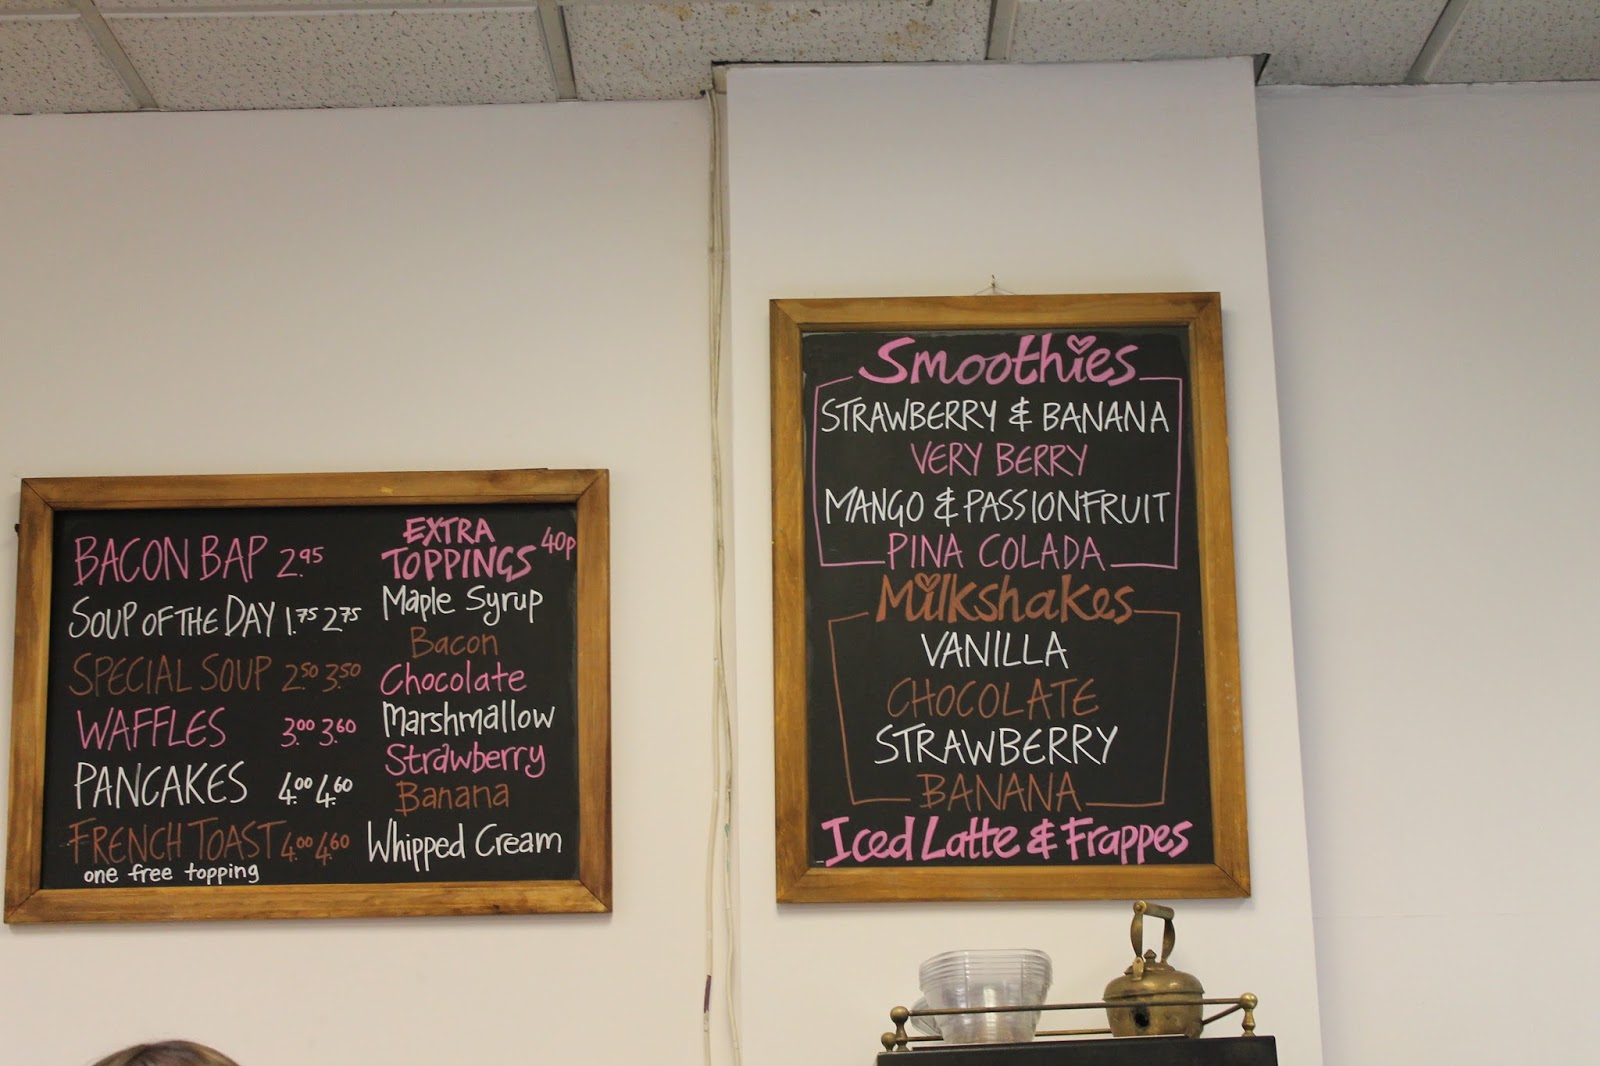 BACON BAP 2.95
SOUP OF THE DAY 1.75 2.75
SPECIAL SOUP 2.50 3.50
WAFFLES 3.00 3.60
PANCAKES 4.00 4.60
FRENCH TOAST 4.00 4.60
one free topping
EXTRA
TOPPINGS 40p
Maple Syrup
Bacon
Chocolate
Marshmallow
Strawberry
Banana
Whipped Cream
Smoothies
STRAWBERRY & BANANA
VERY BERRY
MANGO & PASSIONFRUIT
PINA COLADA
Milkshakes
VANILLA
CHOCOLATE
STRAWBERRY
BANANA
Iced Latte & Frappes